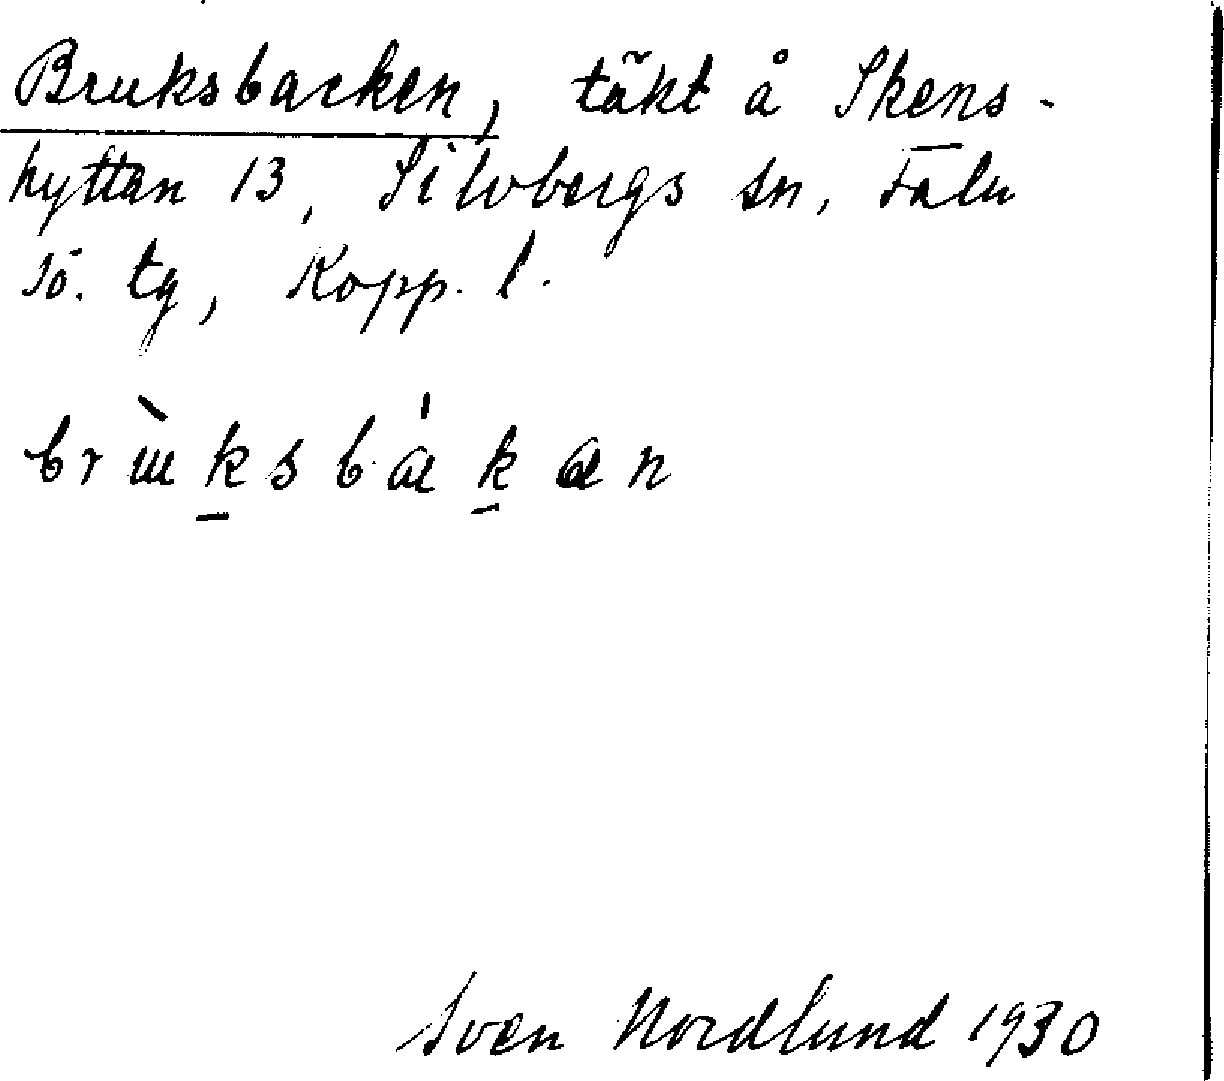 Bruksbacken, täkt å Skens-
hyttan 13, Silvbergs sn, Falu
sö. tg, Kopp. l.
brɯ̀ksbákæn
Sven Nordlund 1930